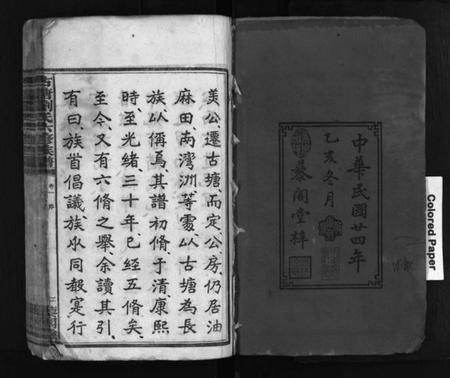 中華民國廿四年
乙亥冬月
藜閣堂梓
美公遷古塘而定公房仍居油
麻田南灣洲等處以古塘為長
族以偁焉其譜初脩于清康熙
時至光緒三十年已經五脩矣
至今又有六脩之舉余讀其引
有曰族首倡議族眾同報寔行
六修族譜
卷一 序
Colored Paper